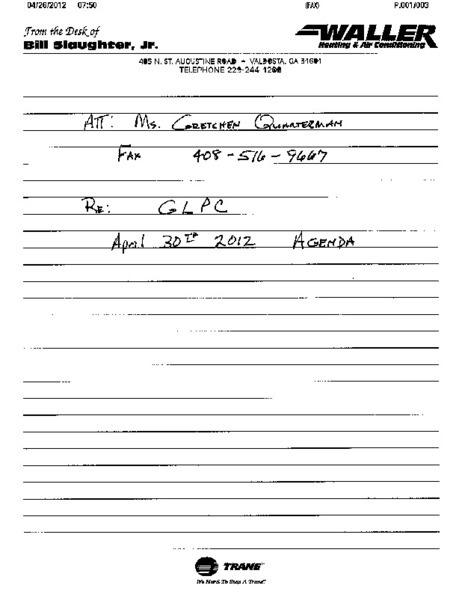 04/26/2012 07:50 (FAX) P.001/003
From the Desk of
Bill Slaughter, Jr.
WALLER
Heating & Air Conditioning
405 N. ST. AUGUSTINE ROAD • VALDOSTA, GA 31601
TELEPHONE 229-244-1200
ATT: Ms. GRETCHEN QUARTERMAN
FAX 408-516-9667
RE: GLPC
April 30TH 2012 AGENDA
TRANE
It's Hard To Stop A Trane.®